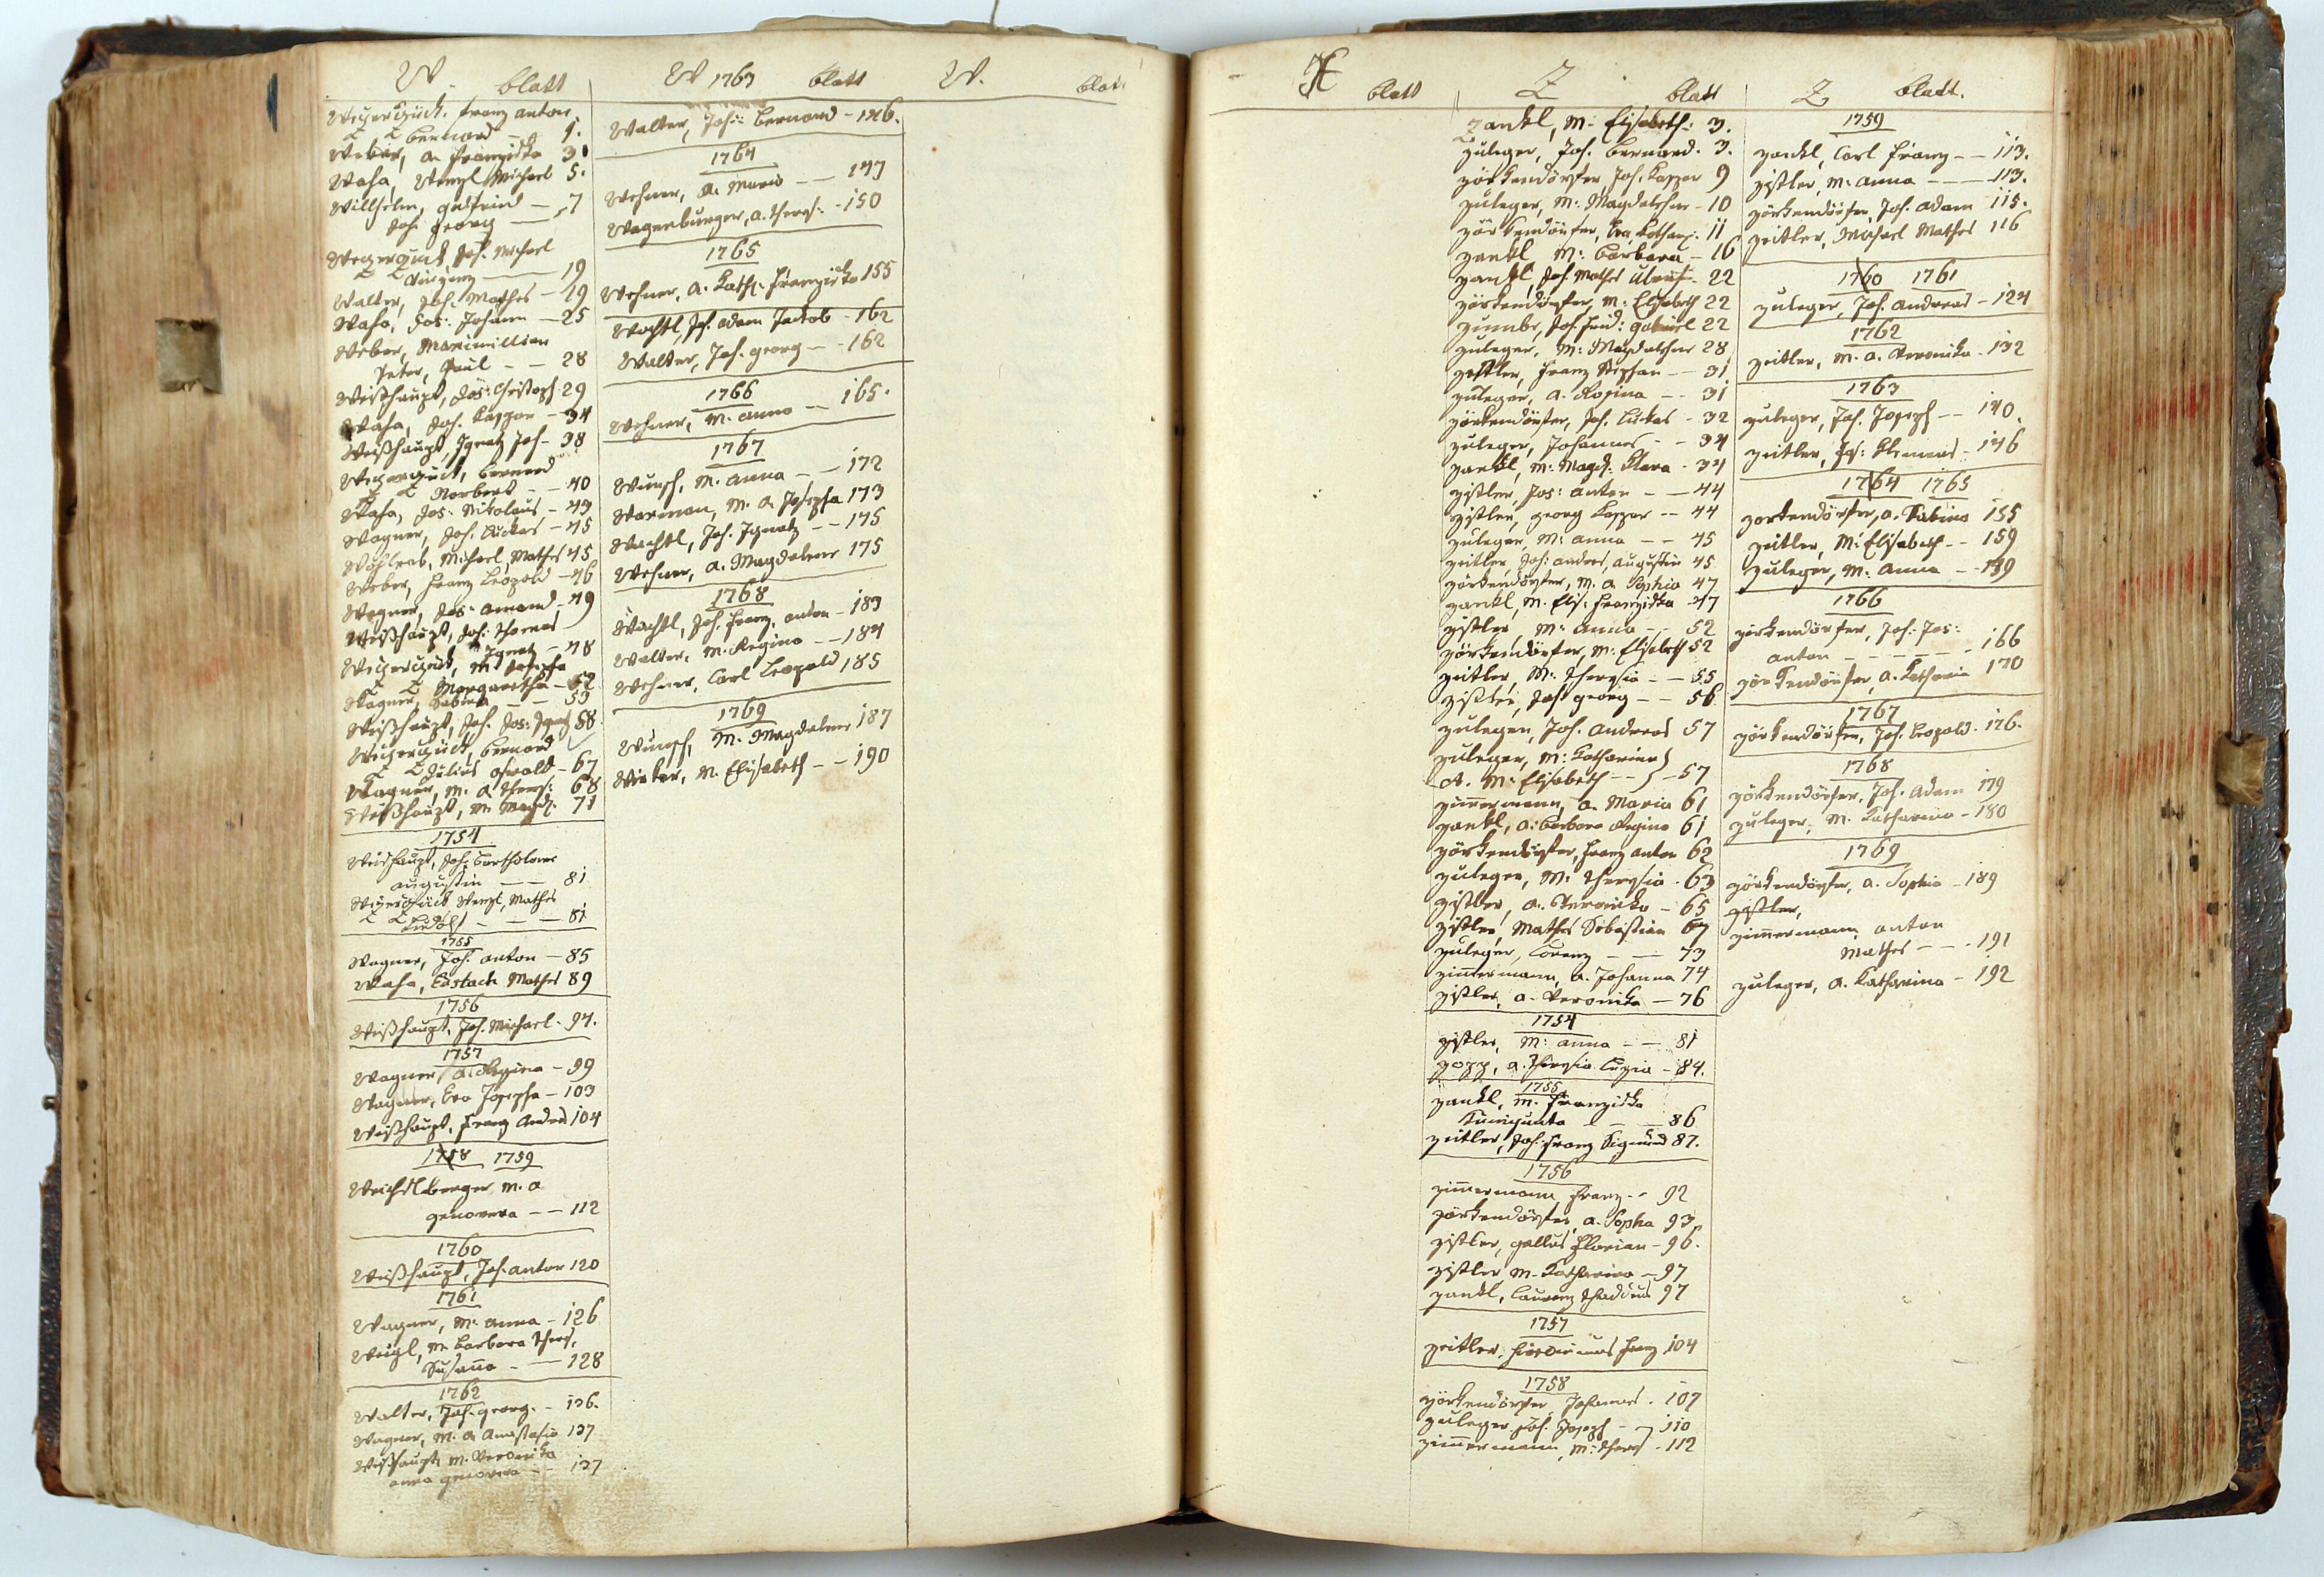 W. blatt
Weyerguck, Franz Anton
Z Z Bernard - 1.
Weber, A. Franziska 3
Waha, Wenzl Michael 5.
Willhelm, Gottfried
Joh. Georg - 7
Weyerguck, Joh. Michael
Z Z - 19
Walter, Joh. Mathes - 19
Waha, Jos. Johann - 25
Weber, Maximillian
Peter, Paul - - 28
Weißhaupt, Jos: Christoph 29
Waha, Joh. Caspar - 34
Weißhaupt, Ignatz Joh - 38
Weyerguck, Bernard
Z Z Norbert - - 40
Waha, Jos: Nikolaus - 43
Wagner, Joh. Luckas - 45
Wohlrab, Michael, Mathes 45
Weber, Franz Leopold - 46
Wagner, Jos: Amand - 49
Weißhaupt, Joh: Thomas
Ignatz - 48
Weyerguck, M. Josepha
Z Z Margaretha - 52
Wagner, Sabina - - 53
Weißhaupt, Joh. Jos: Ignatz 58
Weyerguck, Bernard
Z Z Julius Oswald - 67
Wagner, M. A. Theres: 68
Weißhaupt, M. Magd. 71
1754
Weishaupt, Joh. Bartholome
Augustin - - 81
Weyerguck Wenzl, Mathes
Z Z - - 81
1755
Wagner, Joh. Anton - 85
Waha, Eustach Mathes 89
1756
Weißhaupt, Joh. Michael - 94.
1757
Wagner, A. Regina - 99
Wagner, Eva Josepha - 103
Weißhaupt, Franz Andre 104
1758 1759
Weichslberger M. A
Genovera - - 112
1760
Weißhaupt, Joh. Anton 120
1761
Wagner, M. Anna - 126
Weigl, M. Barbara Theres,
Susana - - 128
1762
Walter, Joh. Georg. - 136.
Wagner, M. A. Anastasia 137
Weißhaupt M. Veronika
Anna Genovera - - 137
W 1763 blatt
Walter, Joh: Bernard - 146.
1764
Wehner, A. Maria - - 147
Wagenburger, A. Theres: - 150
1765
Wehner, A. Kath. Franziska 155
Wachtl, Joh. Adam Jackob - 162
Walter, Joh. Georg - - 162
1766
Wehner, M. Anna - - 165.
1767
Wunsch, M. Anna - - 172
Warman, M. A. Josepha 173
Wachtl, Joh. Ignatz - - 175
Wehner, A. Magdalena 175
1768
Wachtl, Joh. Franz, Anton - 183
Walter, M. Regina - - 184
Wehner, Carl Leopold 185
1769
Wunsch, M. Magdalena 187
M. Elisabeth - - 190
W. blatt
X blatt
Z blatt
Zankl, M: Elisabeth: 3.
Zuleger, Joh. Bernard. 3.
Zörkendörfer Joh. Caspar 9
Zuleger, M: Magdalena - 10
Zörkendörfer, Eva Kathar: 11
Zankl M: Barbara - 16
Zankl, Joh. Mathes 22
Zörkendörfer, M: Elisabeth 22
Joh. Gabriel 22
Zuleger, M: Magdalena 28
Zistler, Franz Stephan - - 31
Zuleger, A. Rosina - - 31
Zörkendörfer, Joh. Luckas - 32
Zuleger, Johannes - - 34
Zankl, M: Magd. Klara - 34
Zistler, Jos: Anton - - 44
Zistler, Georg Caspar - - 44
Zuleger, M: Anna - - 45
Zeitler, Joh: Andres, Augustin 45
Zörkendörfer, M. A. Sophia 47
Zankl, M. Elis: Franziska 47
Zistler, M: Anna - - 52
Zörkendörfer, M. Elisabeth 52
Zeitler, M: Theresia - - 55
Zistler, Joh. Georg - - 56
Zuleger, Joh. Andreas 57
Zuleger, M: Katharina }
A. M: Elisabeth - - } - 57
Zimermann, A. Maria 61
Zankl, A: Barbara Regina 61
Zörkendörfer, Franz Anton 62
Zuleger, M: Theresia - 63
Zistler, A. Veronika - 65
Zistler, Mathes Sebastian 67
Zuleger, Lorenz - - 73
Zimermann, A. Johanna 74
Zistler, A. Veronika - 76
1754
Zistler, M: Anna - - 81
Zopp, A. Theresia Luzia - 84.
1755
Zankl, M. Franziska
Kunigunta - - 86
Zeitler, Joh. Franz Sigmund 87.
1756
Zimermann Franz - - 92
Zörkendörfer, A. Sopha 93
Zistler, Gallus Florian - 96.
Zistler, M. Katharina - 97
Zankl, Laurenz Thaddeus 97
1757
Zeitler, Hieronimus Franz 104
1758
Zörkendörfer Johannes. 107
Zuleger Joh. Joseph - - 110
Zimermann, M: Theres - 112
Z blatt.
1759
Zankl, Carl Franz - - 113.
Zistler, M: Anna - - 113.
Zörkendörfer, Joh. Adam 115.
Zeitler, Michael Mathes 116
1760 1761
Zuleger, Joh. Andreas - 124
1762
Zeitler, M. A. Veronika - 132
1763
Zuleger, Joh. Joseph - - 140.
Zeitler, Jos: Klemens - 146
1764 1765
Zorkendörfer, A. Sabina 155
Zeitler, M: Elisabeth - - 159
Zuleger, M: Anna - - 159
1766
Zörkendörfer, Joh: Jos:
Anton - - - 166
Zörkendörfer, A. Katharina 170
1767
Zörkendörfer, Joh. Leopold. 176.
1768
Zörkendörfer, Joh. Adam 179
Zuleger, M. Katharina - 180
1769
Zörkendörfer, A. Sophia - 189
Zistler,
Zimermann Anton
Mathes - - - 191
Zuleger, A. Katharina - 192